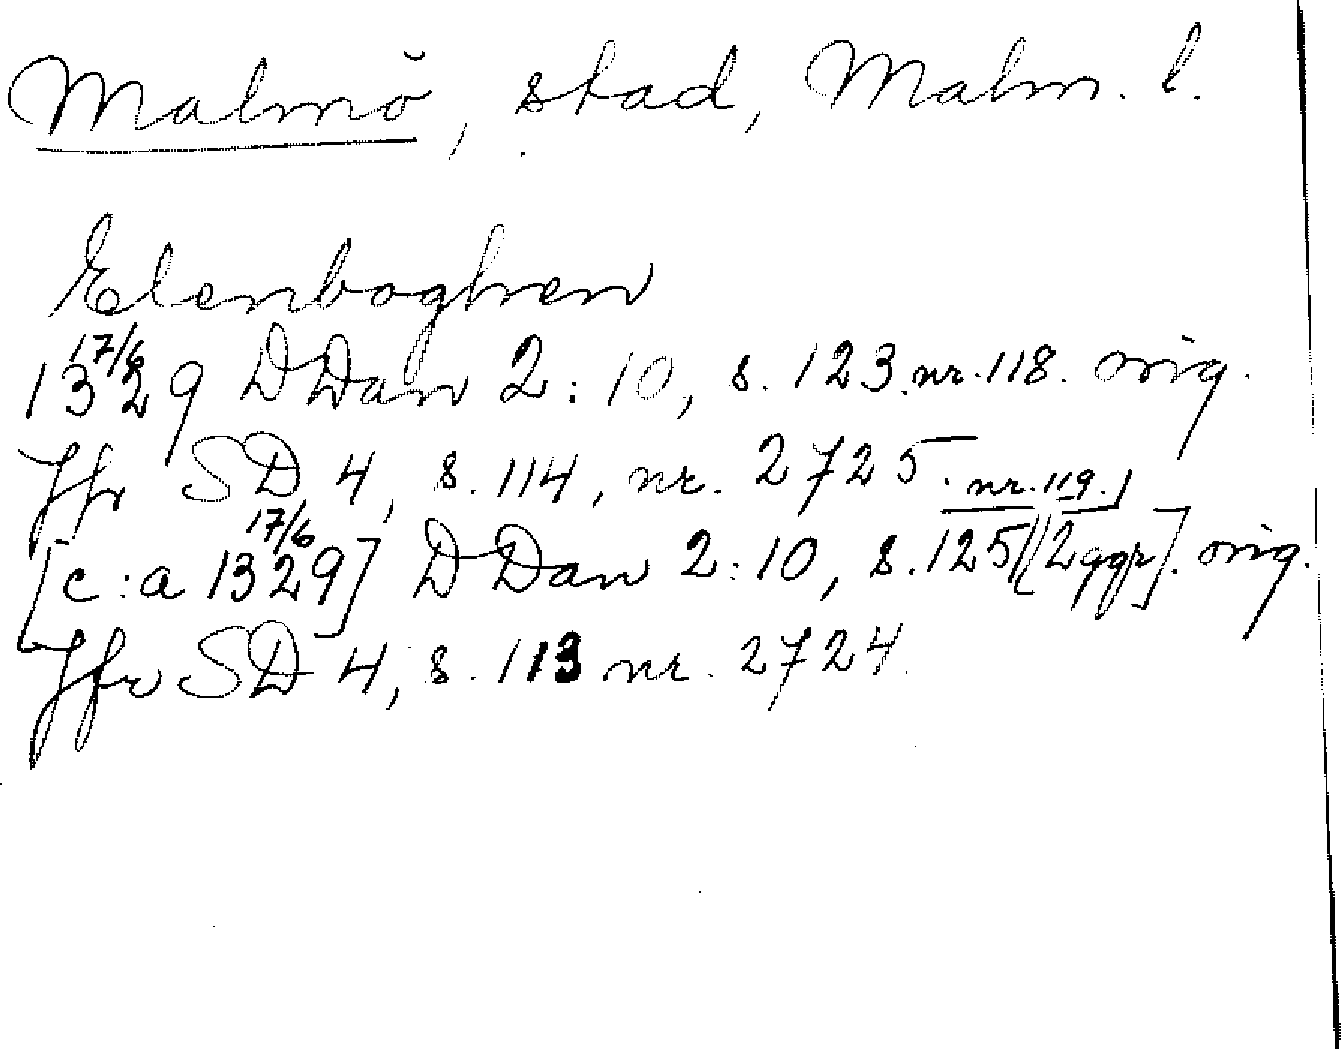 Malmö, stad, Malm. l.
Elenboghen
17/6
1329 DDan 2:10, s. 123 nr. 118. orig.
Jfr SD 4, s. 114, nr. 2725.
nr. 119.
17/6
[c:a 1329] DDan 2:10, s. 125 [2 ggr]. orig.
Jfr SD 4, s. 113 nr. 2724.